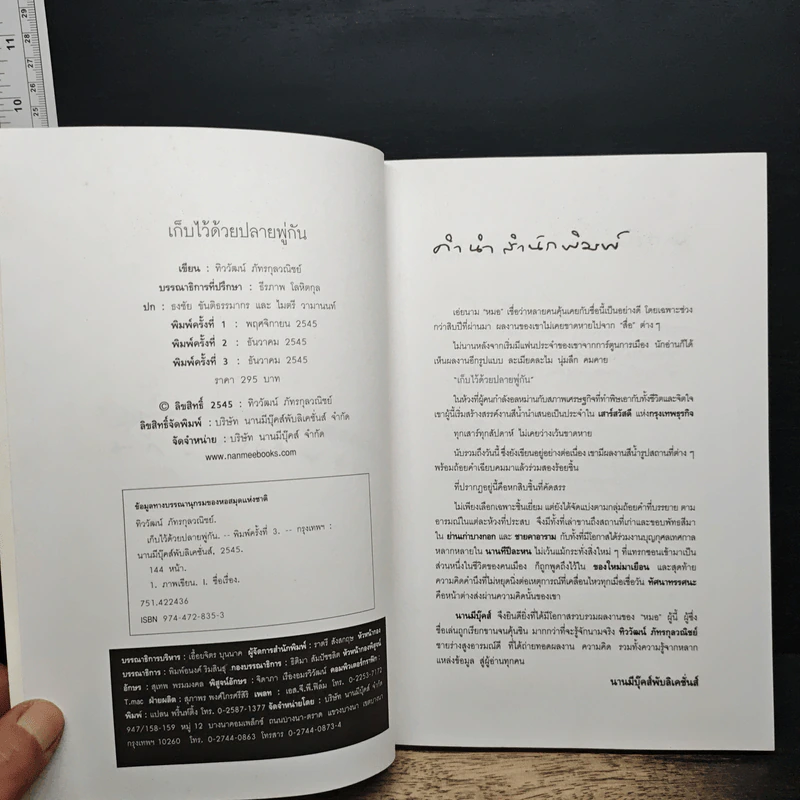 เก็บไว้ด้วยปลายพู่กัน
เขียน : ทิววัฒน์ ภัทรกุลวณิชย์
บรรณาธิการที่ปรึกษา : ธีรภาพ โลหิตกุล
ปก : ธงชัย ขันติธรรมากร และ ไมตรี วามานนท์
พิมพ์ครั้งที่ 1 : พฤศจิกายน 2545
พิมพ์ครั้งที่ 2 : ธันวาคม 2545
พิมพ์ครั้งที่ 3 : ธันวาคม 2545
ราคา 295 บาท
© ลิขสิทธิ์ 2545 : ทิววัฒน์ ภัทรกุลวณิชย์
ลิขสิทธิ์จัดพิมพ์ : บริษัท นานมีบุ๊คส์พับลิเคชั่นส์ จำกัด
จัดจำหน่าย : บริษัท นานมีบุ๊คส์ จำกัด
www.nanmeebooks.com
ข้อมูลทางบรรณานุกรมของหอสมุดแห่งชาติ
ทิววัฒน์ ภัทรกุลวณิชย์.
เก็บไว้ด้วยปลายพู่กัน. -- พิมพ์ครั้งที่ 3. -- กรุงเทพฯ :
นานมีบุ๊คส์พับลิเคชั่นส์, 2545.
144 หน้า.
1. ภาพเขียน. I. ชื่อเรื่อง.
751.422436
ISBN 974-472-835-3
บรรณาธิการบริหาร : เอื้อยจิตร บุนนาค ผู้จัดการสำนักพิมพ์ : ราตรี สังสกฤษ หัวหน้ากอง
บรรณาธิการ : พิมพ์อนงค์ ริมสินธุ กองบรรณาธิการ : ธิติมา สัมปัชชลิต หัวหน้ากองพิสูจน์
อักษร : สุเทพ พรมมงคล พิสูจน์อักษร : จิดาภา เรืองอมรวิวัฒน์ คอมพิวเตอร์กราฟิก :
T.mac ฝ่ายผลิต : สุภาพร พงศ์ไกรศรีสิริ เพลท : เอส.จี.พี.ฟิล์ม โทร. 0-2253-7172
พิมพ์ : แปลน พริ้นท์ติ้ง โทร. 0-2587-1377 จัดจำหน่ายโดย : บริษัท นานมีบุ๊คส์ จำกัด
947/158-159 หมู่ 12 บางนาคอมเพล็กซ์ ถนนบางนา-ตราด แขวงบางนา เขตบางนา
กรุงเทพฯ 10260 โทร. 0-2744-0863 โทรสาร 0-2744-0873-4
คำนำสำนักพิมพ์
เอ่ยนาม "หมอ" เชื่อว่าหลายคนคุ้นเคยกับชื่อนี้เป็นอย่างดี โดยเฉพาะช่วง
กว่าสิบปีที่ผ่านมา ผลงานของเขาไม่เคยขาดหายไปจาก "สื่อ" ต่าง ๆ
ไม่นานหลังจากเริ่มมีแฟนประจำของเขาจากการ์ตูนการเมือง นักอ่านก็ได้
เห็นผลงานอีกรูปแบบ ละเมียดละไม นุ่มลึก คมคาย
"เก็บไว้ด้วยปลายพู่กัน"
ในห้วงที่ผู้คนกำลังอลหม่านกับสภาพเศรษฐกิจที่ทำพิษเอากับทั้งชีวิตและจิตใจ
เขาผู้นี้เริ่มสร้างสรรค์งานสีน้ำนำเสนอเป็นประจำใน เสาร์สวัสดี แห่งกรุงเทพธุรกิจ
ทุกเสาร์ทุกสัปดาห์ ไม่เคยว่างเว้นขาดหาย
นับรวมถึงวันนี้ ซึ่งยังเขียนอยู่อย่างต่อเนื่อง เขามีผลงานสีน้ำรูปสถานที่ต่าง ๆ
พร้อมถ้อยคำเฉียบคมมาแล้วร่วมสองร้อยชิ้น
ที่ปรากฏอยู่นี้คือหกสิบชิ้นที่คัดสรร
ไม่เพียงเลือกเฉพาะชิ้นเยี่ยม แต่ยังได้จัดแบ่งตามกลุ่มถ้อยคำที่บรรยาย ตาม
อารมณ์ในแต่ละห้วงที่ประสบ จึงมีทั้งที่เล่าขานถึงสถานที่เก่าและขอบพัทธสีมา
ใน ย่านเก่าบางกอก และ ชายคาอาราม กับทั้งที่มีโอกาสได้ร่วมงานบุญกุศลเทศกาล
หลากหลายใน นานทีปีละหน ไม่เว้นแม้กระทั่งสิ่งใหม่ ๆ ที่แทรกซอนเข้ามาเป็น
ส่วนหนึ่งในชีวิตของคนเมือง ก็ถูกพูดถึงไว้ใน ของใหม่มาเยือน และสุดท้าย
ความคิดคำนึงที่ไม่หยุดนิ่งต่อเหตุการณ์ที่เคลื่อนไหวทุกเมื่อเชื่อวัน ทัศนาทรรศนะ
คือหน้าต่างส่งผ่านความคิดนั้นของเขา
นานมีบุ๊คส์ จึงยินดียิ่งที่ได้มีโอกาสรวบรวมผลงานของ "หมอ" ผู้นี้ ผู้ซึ่ง
ชื่อเล่นถูกเรียกขานจนคุ้นชิน มากกว่าที่จะรู้จักนามจริง ทิววัฒน์ ภัทรกุลวณิชย์
ชายร่างสูงอารมณ์ดี ที่ได้ถ่ายทอดผลงาน ความคิด รวมทั้งความรู้จากหลาก
แหล่งข้อมูล สู่ผู้อ่านทุกคน
นานมีบุ๊คส์พับลิเคชั่นส์